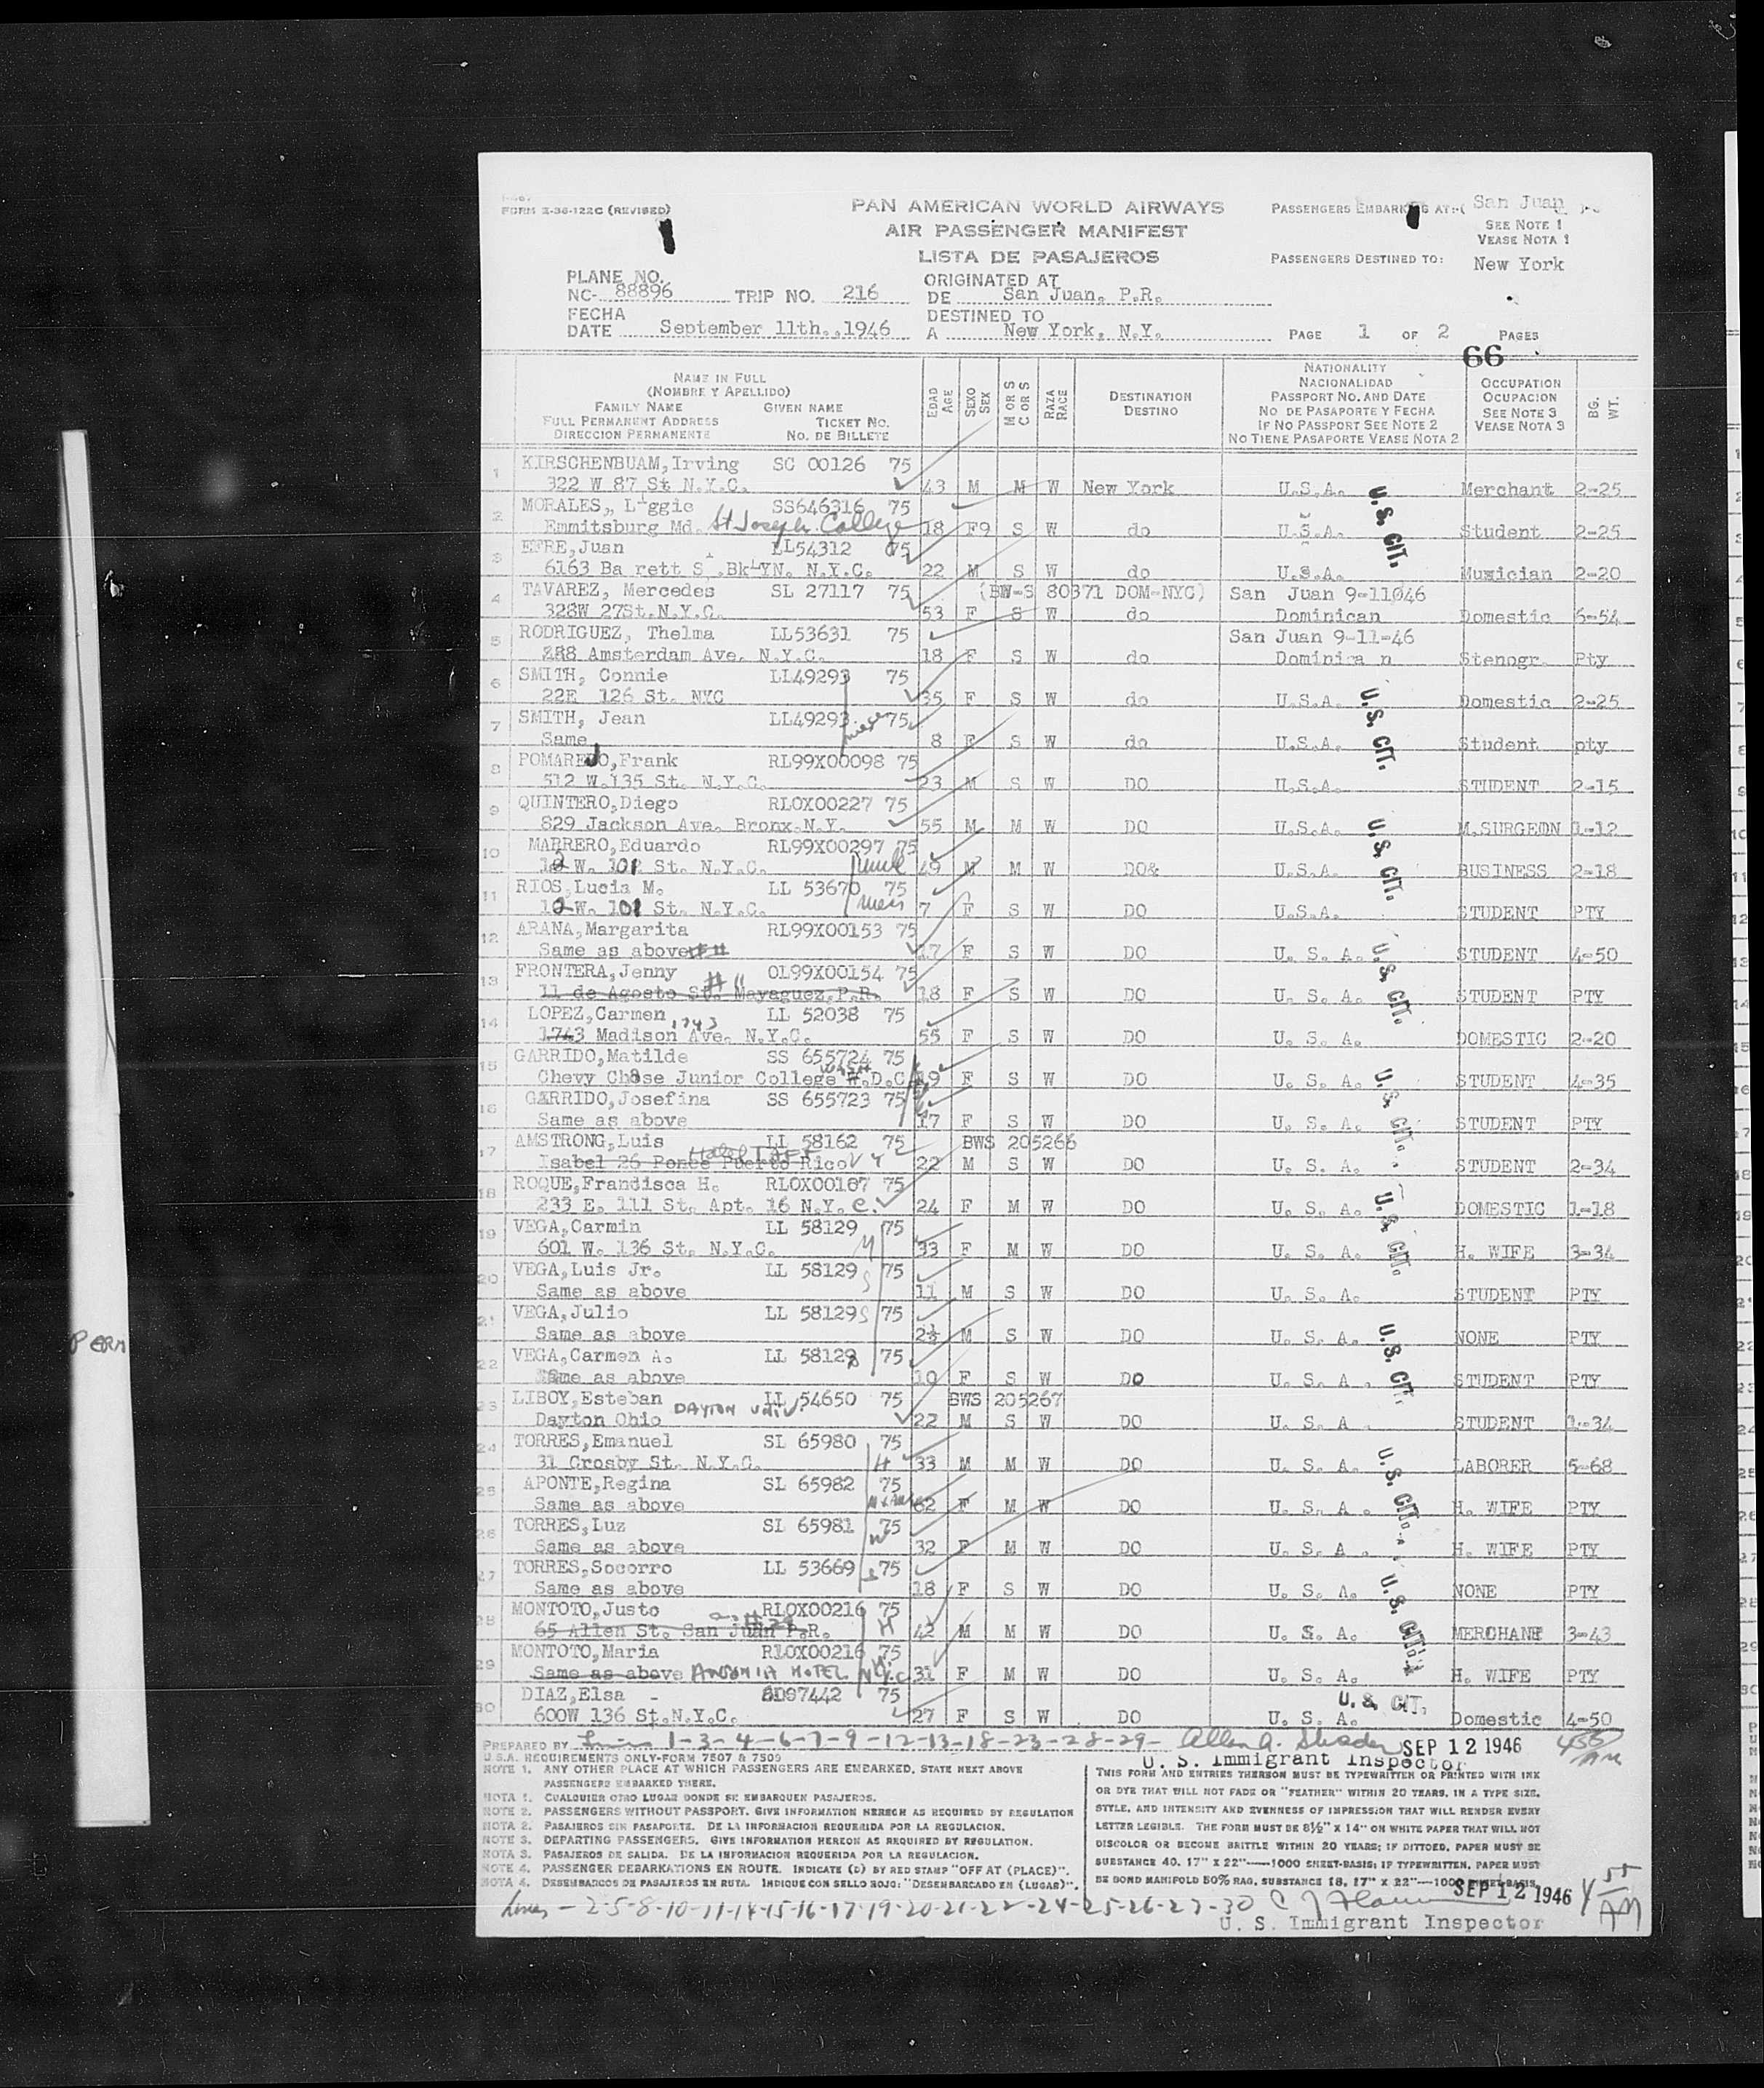 FORM 2-36-122C (REVISED)
PAN AMERICAN WORLD AIRWAYS
AIR PASSENGER MANIFEST
LISTA DE PASAJEROS
PASSENGERS EMBARKING AT: San Juan
SEE NOTE 1
VEASE NOTA 1
PASSENGERS DESTINED TO: New York
PLANE NO.
NC- 88896 TRIP NO. 216
ORIGINATED AT
DE San Juan, P.R.
FECHA
DATE September 11th., 1946
DESTINED TO
A New York, N.Y.
PAGE 1 OF 2 PAGES
66
NAME IN FULL
(NOMBRE Y APELLIDO)
FAMILY NAME GIVEN NAME
FULL PERMANENT ADDRESS TICKET NO.
DIRECCION PERMANENTE NO. DE BILLETE
EDAD AGE
SEXO SEX
M OR S
C OR S
RAZA RACE
DESTINATION
DESTINO
NATIONALITY
NACIONALIDAD
PASSPORT NO. AND DATE
NO. DE PASAPORTE Y FECHA
IF NO PASSPORT SEE NOTE 2
NO TIENE PASAPORTE VEASE NOTA 2
OCCUPATION
OCUPACION
SEE NOTE 3
VEASE NOTA 3
BG. WT.
1 KIRSCHENBUAM, Irving SC 00126 75
322 W 87 St N.Y.C. 43 M M W New York U.S.A. Merchant 2-25
2 MORALES, Liggie SS646316 75
Emmitsburg Md. St Joseph College 18 F9 S W do U.S.A. Student 2-25
U.S. CIT.
3 EFRE, Juan LL54312 75
6163 Ba rett S .BkLYN. N.Y.C. 22 M S W do U.S.A. Musician 2-20
4 TAVAREZ, Mercedes SL 27117 75 (BW-S 80371 DOM-NYC) San Juan 9-11046
328W 27St.N.Y.C. 53 F S W do Dominican Domestic 6-54
5 RODRIGUEZ, Thelma LL53631 75 San Juan 9-11-46
288 Amsterdam Ave. N.Y.C. 18 F S W do Dominica n Stenogr. Pty
6 SMITH, Connie LL49293 75
22E 126 St. NYC 35 F S W do U.S.A. Domestic 2-25
U.S. CIT.
7 SMITH, Jean LL49293 niece 75
Same 8 F S W do U.S.A. Student pty
8 POMAREJO, Frank RL99X00098 75
512 W.135 St. N.Y.C. 23 M S W DO U.S.A. STUDENT 2-15
9 QUINTERO, Diego RLOX00227 75
829 Jackson Ave. Bronx.N.Y. 55 M M W DO U.S.A. M.SURGEON 1-12
U.S. CIT.
10 MARRERO, Eduardo RL99X00297 75
12 W. 101 St. N.Y.C. uncle 49 M M W DO& U.S.A. BUSINESS 2-18
11 RIOS, Lucia M. LL 53670 75
12 W. 101 St. N.Y.C. niece 7 F S W DO U.S.A. STUDENT PTY
12 ARANA, Margarita RL99X00153 75
Same as above #11 17 F S W DO U. S. A. STUDENT 4-50
U.S. CIT.
13 FRONTERA, Jenny OL99X00154 75
# 11
11 de Agosto St. Mayaguez, P.R. 18 F S W DO U. S. A. STUDENT PTY
14 LOPEZ, Carmen LL 52038 75
1743
1743 Madison Ave. N.Y.C. 55 F S W DO U. S. A. DOMESTIC 2-20
15 GARRIDO, Matilde SS 655724 75
WASH
Chevy Chase Junior College W.D.C. 19 F S W DO U. S. A. STUDENT 4-35
U.S. CIT.
16 GARRIDO, Josefina SS 655723 75
Same as above 17 F S W DO U. S. A. STUDENT PTY
17 AMSTRONG, Luis LL 58162 75 BWS 205266
Hotel TAFT N Y C
Isabel 26 Ponce Puerto Rico 22 M S W DO U. S. A. STUDENT 2-34
18 ROQUE, Frandisca H. RLOX00187 75
233 E. 111 St. Apt. 16 N.Y. C. 24 F M W DO U. S. A. DOMESTIC 1-18
U.S. CIT.
19 VEGA, Carmin LL 58129 75
601 W. 136 St. N.Y.C. M 33 F M W DO U. S. A. H. WIFE 3-34
20 VEGA, Luis Jr. LL 58129 S 75
Same as above 11 M S W DO U. S. A. STUDENT PTY
21 VEGA, Julio LL 58129 S 75
Same as above 2½ M S W DO U. S. A. NONE PTY
U.S. CIT.
22 VEGA, Carmen A. LL 58129 75
Same as above 10 F S W DO U. S. A . STUDENT PTY
23 LIBOY, Esteban LL 54650 75 BWS 205267
Dayton Ohio DAYTON UNIV 22 M S W DO U. S. A STUDENT 1-34
24 TORRES, Emanuel SL 65980 75
31 Crosby St. N.Y.C. H 33 M M W DO U. S. A. LABORER 5-68
U.S. CIT.
25 APONTE, Regina SL 65982 75
Same as above 62 F M W DO U. S. A . H. WIFE PTY
26 TORRES, Luz SL 65981 75
Same as above W 32 F M W DO U. S. A . H. WIFE PTY
27 TORRES, Socorro LL 53669 S 75
Same as above 18 F S W DO U. S. A. NONE PTY
U.S. CIT.
28 MONTOTO, Justo RLOX00216 75
65 Allen St. San Juan P.R. H 42 M M W DO U. S. A. MERCHANT 3-43
29 MONTOTO, Maria RLOX00216 75
Same as above ANSONIA HOTEL N.Y.C 31 F M W DO U. S. A. H. WIFE PTY
30 DIAZ, Elsa - SD97442 75
600W 136 St.N.Y.C. 27 F S W DO U. S. A. Domestic 4-50
U.S. CIT.
PREPARED BY 1-3-4-6-7-9-12-13-18-23-28-29- SEP 12 1946 AM
U. S. Immigrant Inspector
U.S.A. REQUIREMENTS ONLY-FORM 7507 & 7509
NOTE 1. ANY OTHER PLACE AT WHICH PASSENGERS ARE EMBARKED, STATE NEXT ABOVE
PASSENGERS EMBARKED THERE.
NOTA 1. CUALQUIER OTRO LUGAR DONDE SE EMBARQUEN PASAJEROS.
NOTE 2. PASSENGERS WITHOUT PASSPORT. GIVE INFORMATION HEREON AS REQUIRED BY REGULATION
NOTA 2. PASAJEROS SIN PASAPORTE. DE LA INFORMACION REQUERIDA POR LA REGULACION.
NOTE 3. DEPARTING PASSENGERS. GIVE INFORMATION HEREON AS REQUIRED BY REGULATION.
NOTA 3. PASAJEROS DE SALIDA. DE LA INFORMACION REQUERIDA POR LA REGULACION.
NOTE 4. PASSENGER DEBARKATIONS EN ROUTE. INDICATE (D) BY RED STAMP "OFF AT (PLACE)".
NOTA 4. DESEMBARCOS DE PASAJEROS EN RUTA. INDIQUE CON SELLO ROJO: "DESEMBARCADO EN (LUGAR)".
THIS FORM AND ENTRIES THEREON MUST BE TYPEWRITTEN OR PRINTED WITH INK
OR DYE THAT WILL NOT FADE OR "FEATHER" WITHIN 20 YEARS, IN A TYPE SIZE,
STYLE, AND INTENSITY AND EVENNESS OF IMPRESSION THAT WILL RENDER EVERY
LETTER LEGIBLE. THE FORM MUST BE 8½" X 14" ON WHITE PAPER THAT WILL NOT
DISCOLOR OR BECOME BRITTLE WITHIN 20 YEARS; IF DITTOED, PAPER MUST BE
SUBSTANCE 40. 17" X 22"—1000 SHEET-BASIS; IF TYPEWRITTEN, PAPER MUST
BE BOND MANIFOLD 50% RAG, SUBSTANCE 18, 17" X 22"—1000 SHEET-BASIS.
Lines - 2-5-8-10-11-14-15-16-17-19-20-21-22-24-25-26-27-30 SEP 12 1946 4 55 AM
U. S. Immigrant Inspector
PERM